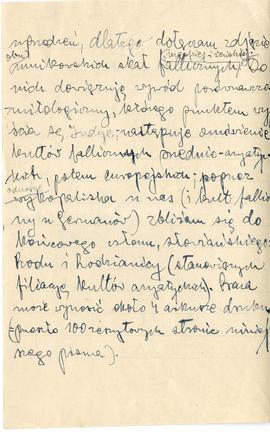 uprodzeń, dlatego dołączam zdjęcie
obu
skał fallicznych. Do
nich dowiązuję wywód porównawczo
mitologiczny, którego punktem wyj
ścia są Indje; następuje omówienie
kultów fallicznych przednio-azjatyc
kich, potem europejskich; poprzez
odnośne
wykopaliska u nas (i kult fallicz
ny u Germanów) zbliżam się do
końcowego członu, słowiańskiego
Rodu i Rodzianicy (stanowiących
filiację kultów azjatyckich). Praca
może wynosić około 4 arkusze druku
(= ponad 100 zeszytowych stronic niniej
szego pisma).